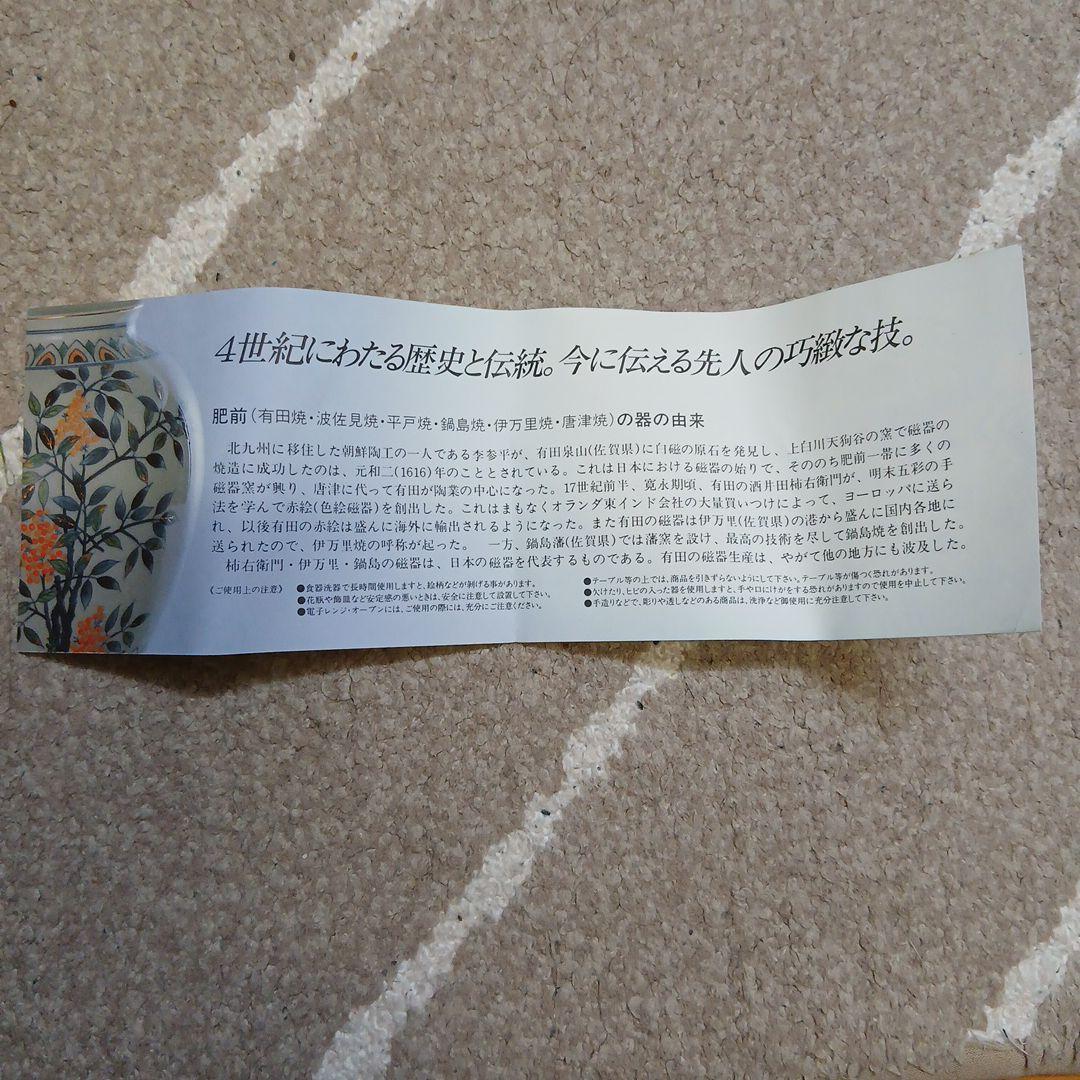 4世紀にわたる歴史と伝統。今に伝える先人の巧緻な技。
肥前(有田焼・波佐見焼・平戸焼・鍋島焼・伊万里焼・唐津焼)の器の由来
北九州に移住した朝鮮陶工の一人である李参平が、有田泉山(佐賀県)に白磁の原石を発見し、上白川天狗谷の窯で磁器の
焼造に成功したのは、元和二(1616)年のこととされている。これは日本における磁器の始りで、そののち肥前一帯に多くの
磁器窯が興り、唐津に代って有田が陶業の中心になった。17世紀前半、寛永期頃、有田の酒井田柿右衛門が、明末五彩の手
法を学んで赤絵(色絵磁器)を創出した。これはまもなくオランダ東インド会社の大量買いつけによって、ヨーロッパに送ら
れ、以後有田の赤絵は盛んに海外に輸出されるようになった。また有田の磁器は伊万里(佐賀県)の港から盛んに国内各地に
送られたので、伊万里焼の呼称が起った。 一方、鍋島藩(佐賀県)では藩窯を設け、最高の技術を尽して鍋島焼を創出した。
柿右衛門・伊万里・鍋島の磁器は、日本の磁器を代表するものである。有田の磁器生産は、やがて他の地方にも波及した。
《ご使用上の注意》
●食器洗器で長時間使用しますと、絵柄などが剥げる事があります。
●花瓶や飾皿など安定感の悪いときは、安全に注意して設置して下さい。
●電子レンジ・オーブンには、ご使用の際には、充分にご注意ください。
●テーブル等の上では、商品を引きずらないようにして下さい。テーブル等が傷つく恐れがあります。
●欠けたり、ヒビの入った器を使用しますと、手や口にけがをする恐れがありますので使用を中止して下さい。
●手造りなどで、彫りや透しなどのある商品は、洗浄など御使用に充分注意して下さい。